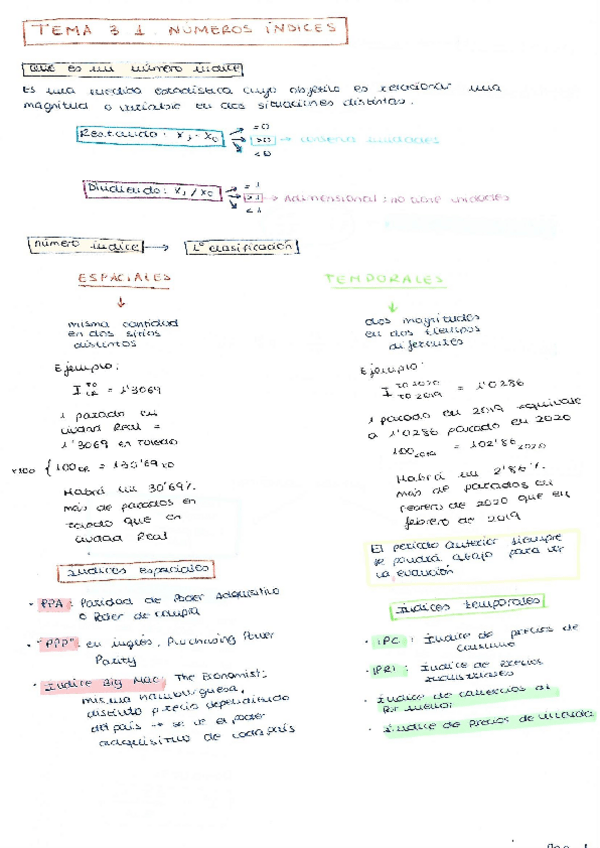 TEMA 3.1. NÚMEROS ÍNDICES
Qué es un número índice
Es una medida estadística cuyo objetivo es relacionar una
magnitud o variable en dos situaciones distintas.
Restando: x₁ - x₀
= 0
> 0 → unidades
< 0
Dividiendo: x₁ / x₀
= 1
> 1 → Adimensional: no unidades
< 1
número índice → 1ª clasificación
ESPACIALES
↓
misma cantidad
en dos sitios
distintos
Ejemplo:
I TO CR = 1'3069
1 parado en
Ciudad Real =
1'3069 en Toledo
x100 { 100 CR = 130'69 TO
Habrá un 30'69%
más de parados en
Toledo que en
Ciudad Real
Índices espaciales
· PPA: Paridad de Poder Adquisitivo
o Poder de compra
· "PPP" en inglés, Purchasing Power
Parity
· Índice Big Mac: The Economist:
misma hamburguesa,
distinto precio dependiendo
del país → se ve el poder
adquisitivo de cada país
TEMPORALES
↓
dos magnitudes
en dos tiempos
diferentes
Ejemplo:
I TO 2020 TO 2019 = 1'0286
1 parado en 2019 equivale
a 1'0286 parado en 2020
100 2019 = 102'86 2020
Habrá un 2'86%
más de parados en
febrero de 2020 que en
febrero de 2019
El periodo anterior siempre
se pondrá abajo para ver
la evolución
Índices temporales
· IPC: Índice de precios de
consumo
· IPRI: Índice de precios
industriales
· Índice de comercios al
por menor
· Índice de precios de vivienda